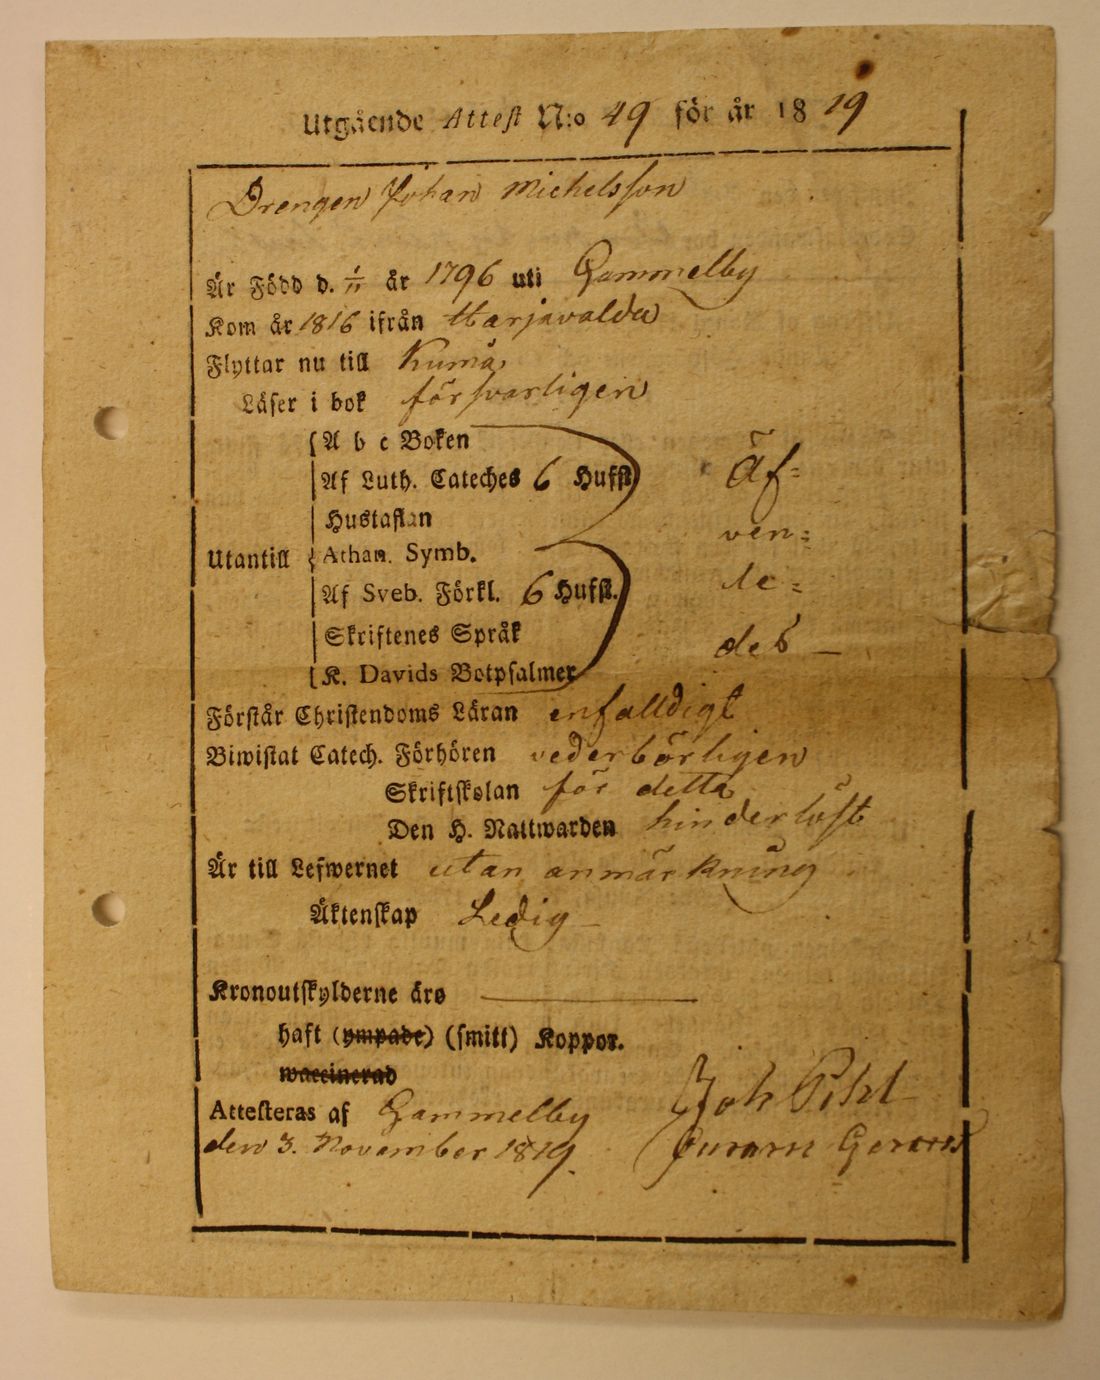 Utgående Attest N:o 49 för år 1819
Drengen Johan Michelsson
Är Född d. 1/11 år 1796 uti Gammelby
Kom år 1816 ifrån Harjavalda
Flyttar nu till Kumå
Läser i bok försvarligen
A b c Boken
Af Luth. Cateches 6 Hufst. Äf=
Hustaflan ven=
Utantill Athan. Symb.
Af Sveb. Förkl. 6 Hufst. le=
Skriftenes Språk des
K. Davids Botpsalmer
Förstår Christendoms Läran enfalldigt
Biwistat Catech. Förhören vederbörligen
Skriftskolan för detta
Den H. Nattwarden hinderlöst
Är till Lefwernet utan anmärkning
Äktenskap Ledig
Kronoutskylderne äro
haft (ympade) (smitt) Koppor.
waccinerad
Attesteras af Gammelby Joh
den 3. November 1819.